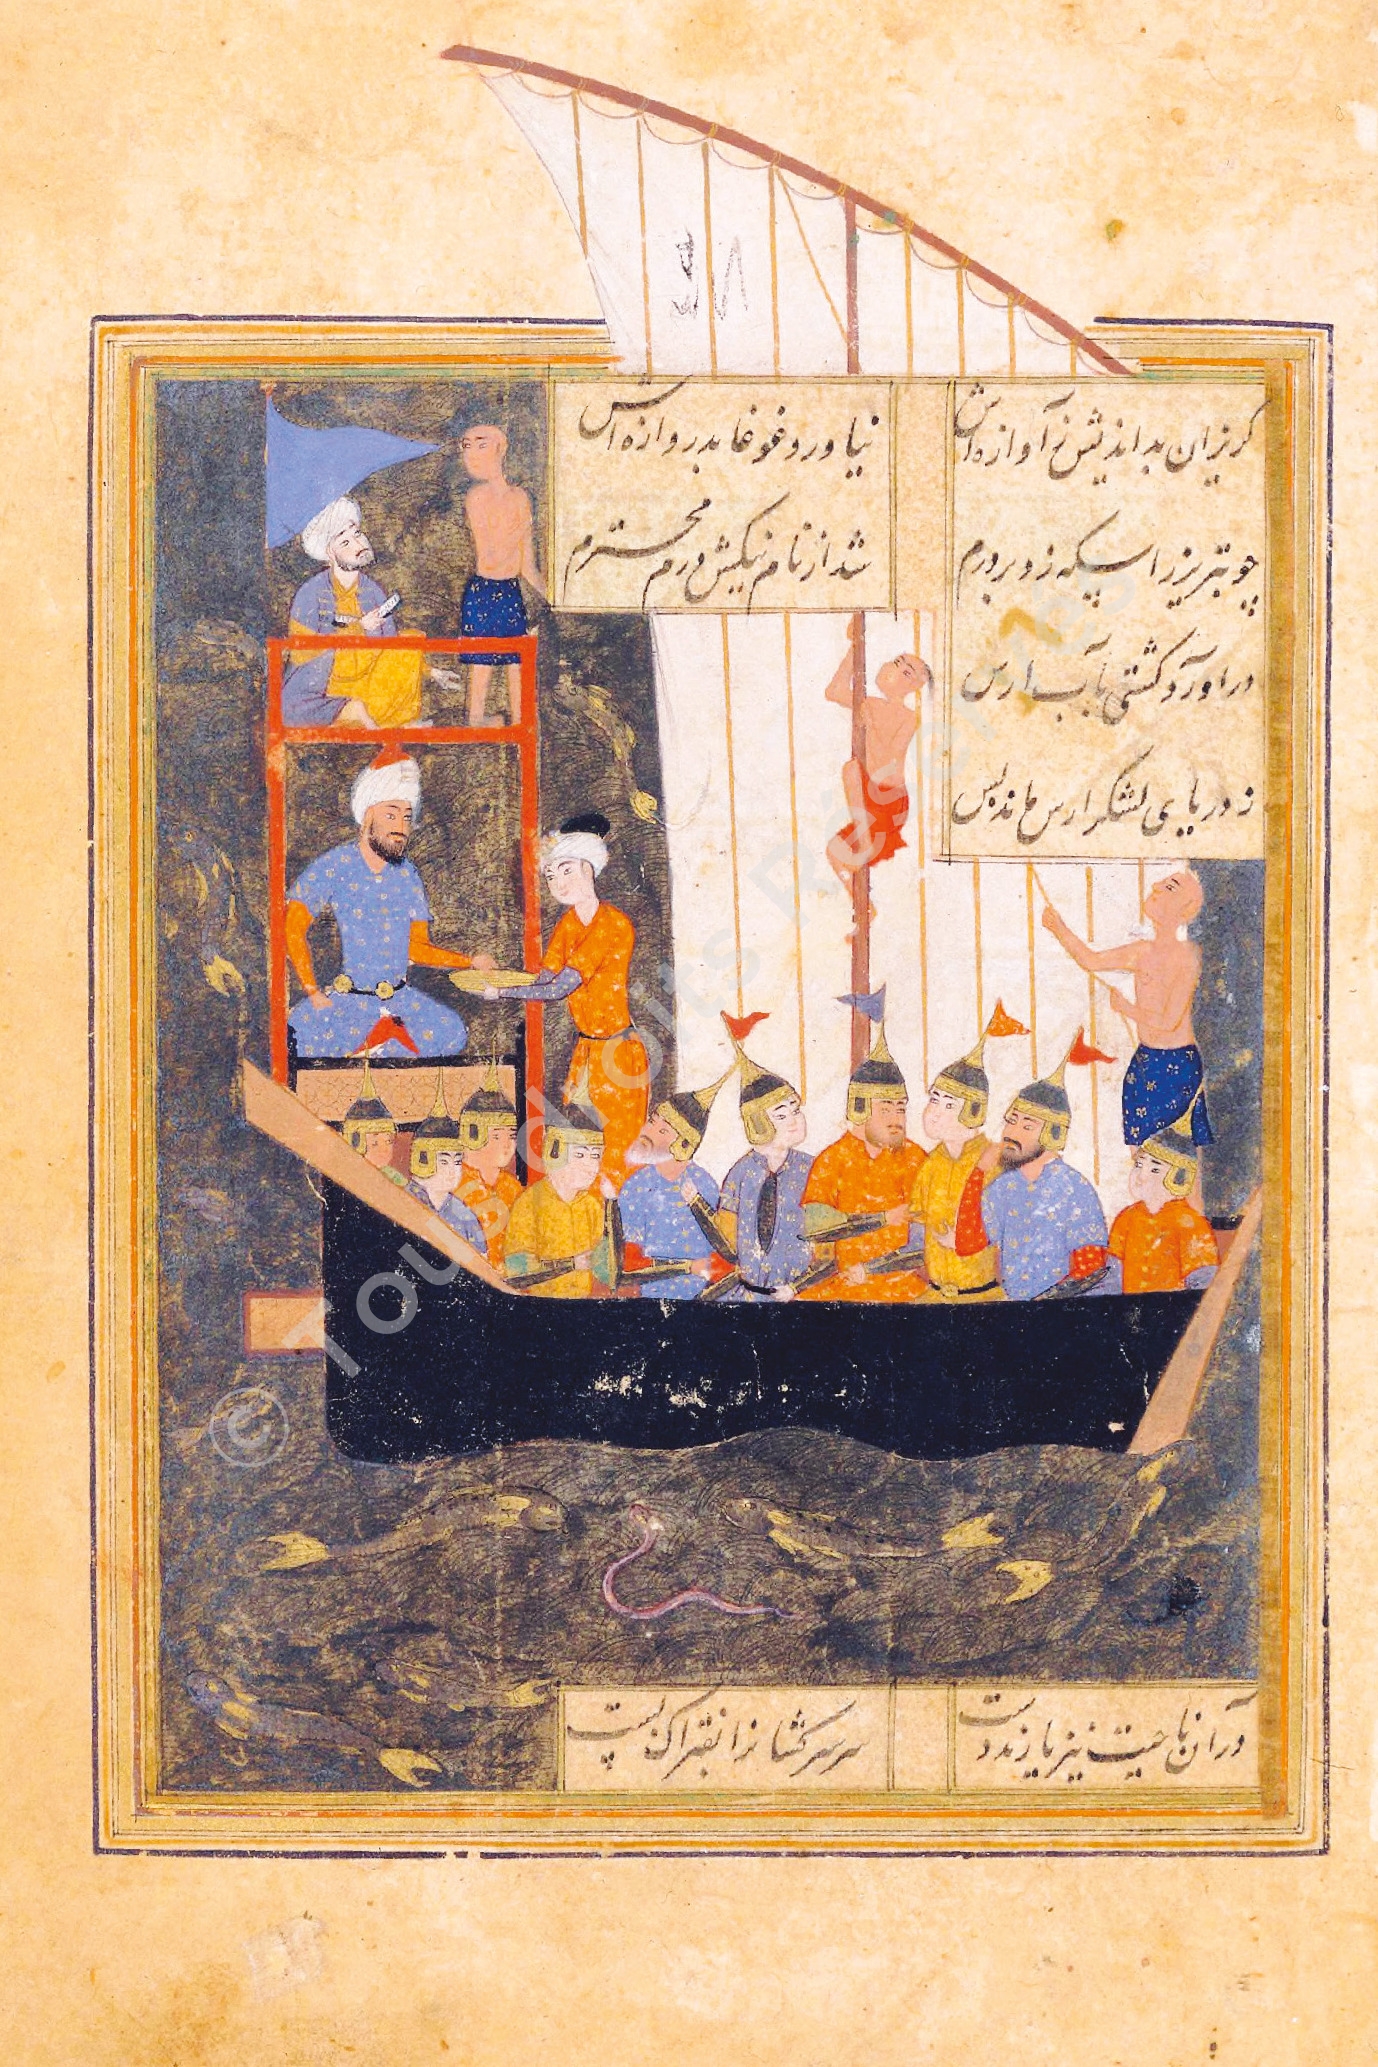 گریزان بداندیش ز آوازه‌اش
نیاورد غوغا بدروازه‌اش
چو تبریز را سکه زد بر درم
شد از نام نیکش درم محترم
درآورد کشتی بآب ارس
ز دریای لشکر ارس ماند پس
در آن ناحیت نیز یازید دست
سر سرکشان را بفتراک بست
© Tous droits Réservés